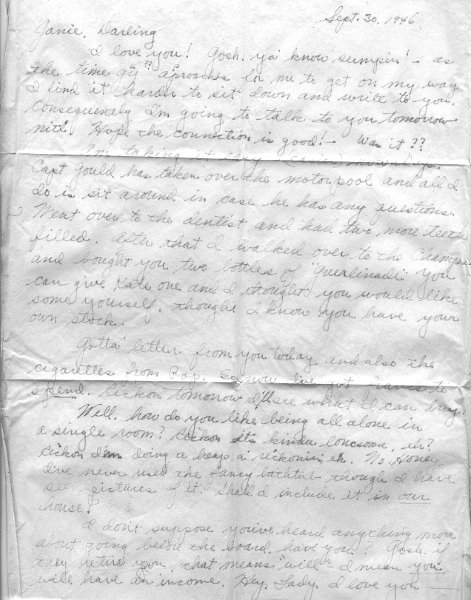 Sept. 30, 1946
Janie, Darling
I love you! Gosh, ya' know sumpin'! - as
the time aproaches for me to get on my way
I find it harder to sit down and write to you.
Consequently I'm going to talk to you tomorrow
nite. Hope the connection is good! - Was it??
taking it
Capt Gould has taken over the motor pool and all I
do is sit around in case he has any questions.
Went over to the dentist and had two more teeth
filled. After that I walked over to the Champs
and bought you two bottles of You
can give Kate one and I thought you would like
some yourself, though I know you have your
own stock.
Gotta' letter from you today and also the
cigarettes from Pop. I've got to
spend. Reckon tomorrow I'll see what I can buy
Well, how do you like being all alone in
a single room? Reckon its kinda lonesome, eh?
Reckon Im doing a heap a' rickonin', eh. No, Honey,
I've never used the fancy bathtub though I have
see pictures of it. Shall I include it in our
house?
I don't suppose you've heard anything more
about going before the board, have you? Gosh, if
they retire you, that means "will" I mean you
will have an income. Hey, Lady, I love you